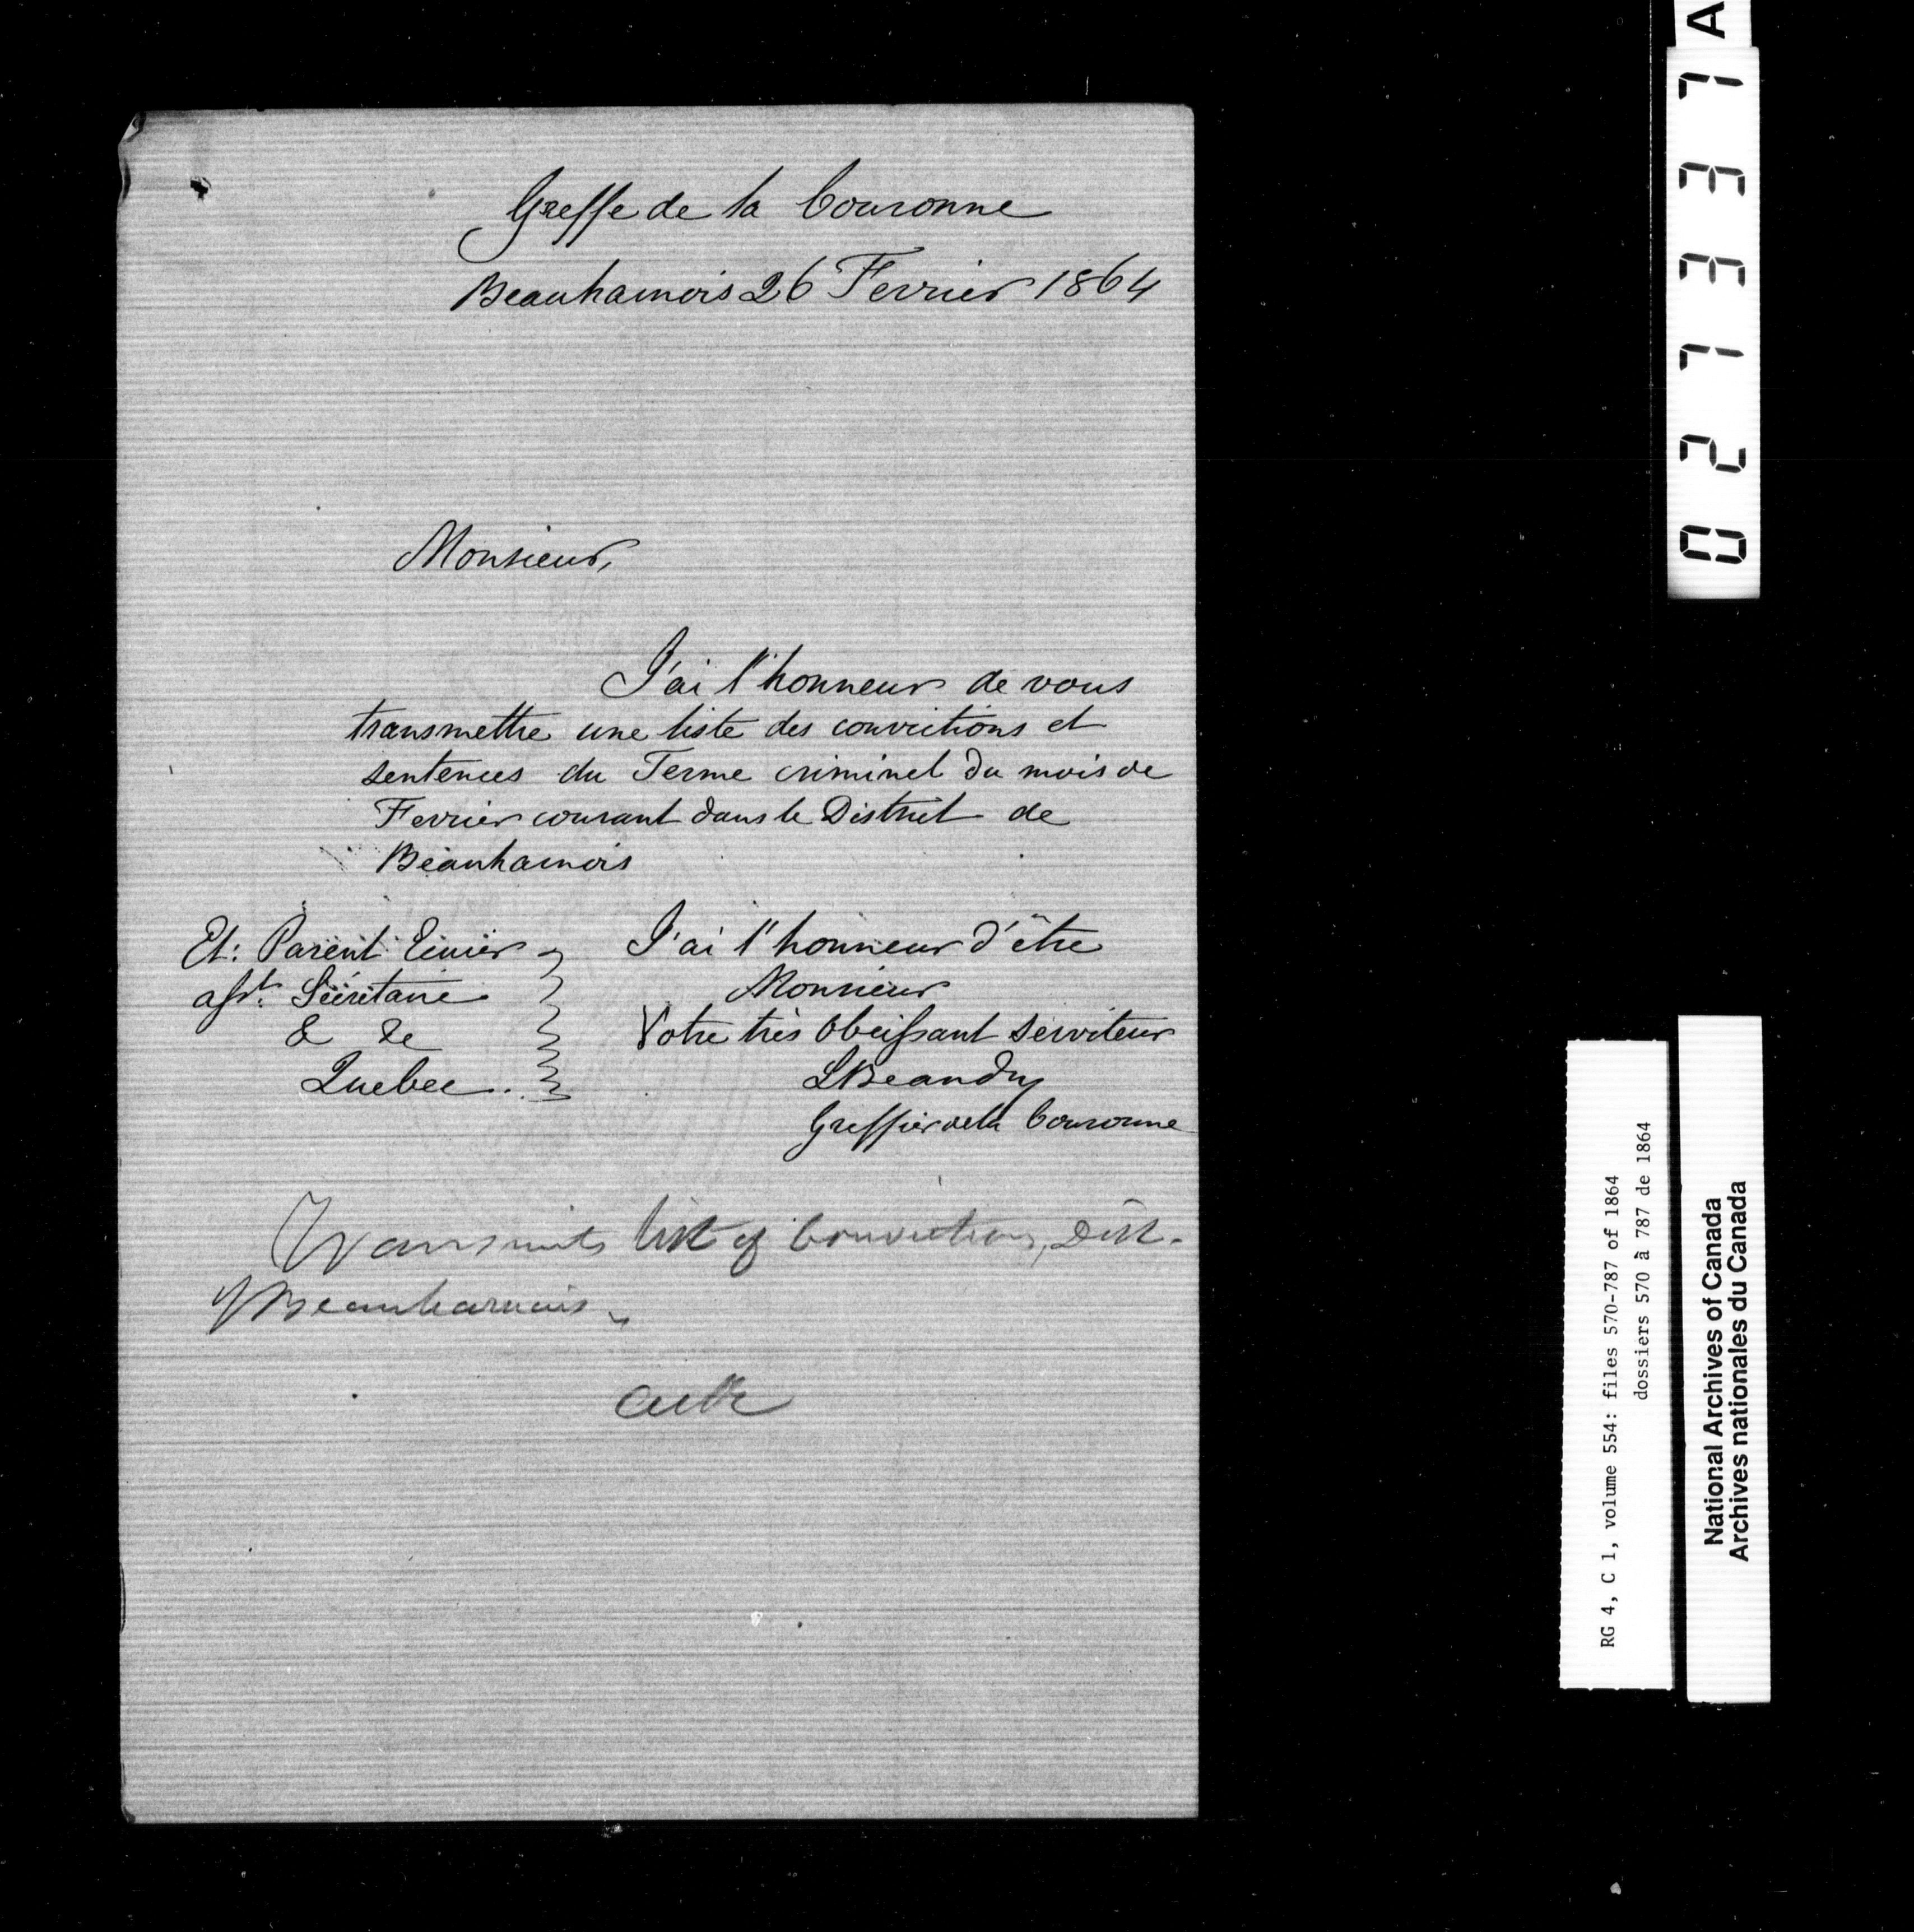 Greffe de la Couronne
Beauharnois 26 Fevrier 1864
Monsieur,
J'ai l'honneur de vous
transmettre une liste des convictions et
sentences du Terme criminel du mois de
Fevrier courant dans le District de
Beauharnois
Et: Parent Ecuier
asst. Sécretaire
& &c
Quebec.
J'ai l'honneur d'être
Monsieur
Votre très Obeissant serviteur
LBeaudry
Greffier de la Couronne
Transmits list of Convictions, Dist.
of Beauharnois
Ack
027337 A
RG 4, C 1, volume 554: files 570-787 of 1864
dossiers 570 à 787 de 1864
National Archives of Canada
Archives nationales du Canada